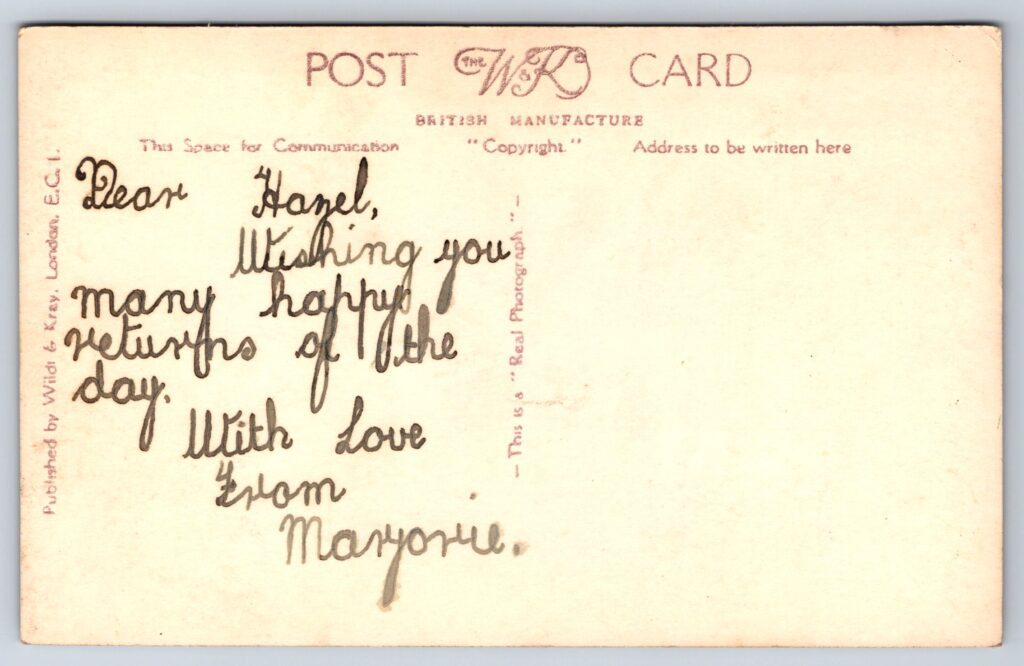 POST THE W & K CARD
BRITISH MANUFACTURE
This Space for Communication "Copyright." Address to be written here
Dear Hazel,
Wishing you
many happy
returns of the
day.
With Love
From
Marjorie.
Published by Wildt & Kray, London, E.C.1.
- This is a "Real Photograph" -